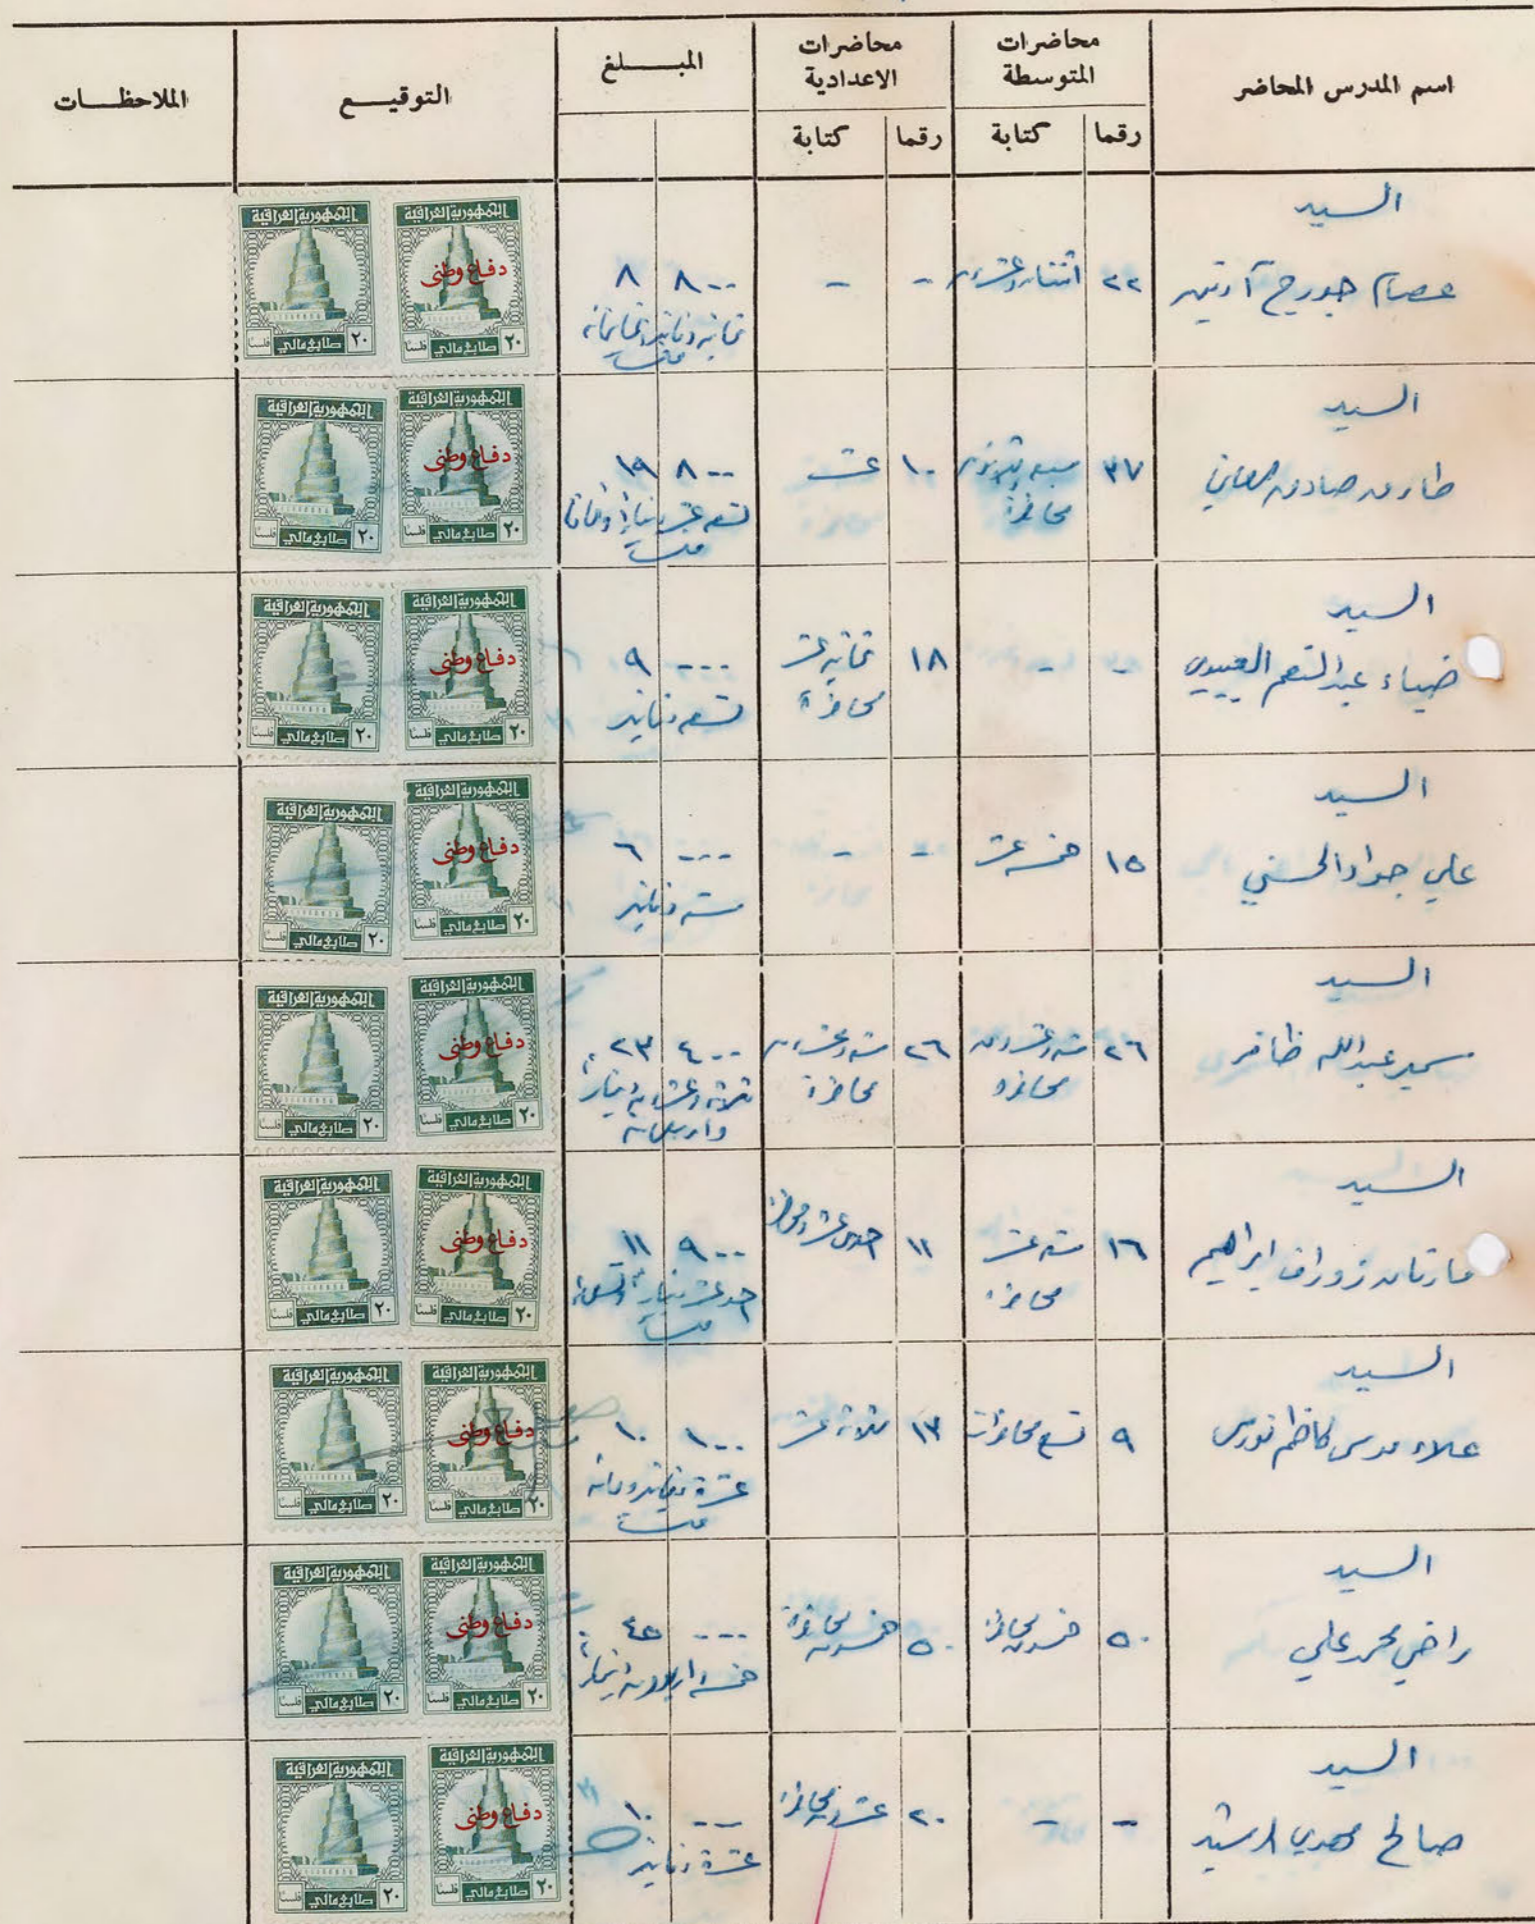 اسم المدرس المحاضر
محاضرات المتوسطة
محاضرات الاعدادية
المبـــلغ
التوقيـــع
الملاحظـــات
رقما
كتابة
رقما
كتابة
السيد
عصام جورج
٢٢
اثنتان وعشرون
-
-
٨٠٠
٨
ثمانية دنانير وثمانمائة فلس
الجمهورية العراقية
دفاع وطني
٢٠ طابع مالي فلسًا
الجمهورية العراقية
٢٠ طابع مالي فلسًا
السيد
طارق صادق
٣٧
سبعة وثلاثون محاضرة
١٠
عشر
٨٠٠
١٩
تسعة عشر دينارا وثمانمائة فلس
الجمهورية العراقية
دفاع وطني
٢٠ طابع مالي فلسًا
الجمهورية العراقية
٢٠ طابع مالي فلسًا
السيد
ضياء عبد المنعم العبيدي
-
-
١٨
ثمانية عشر محاضرة
٠٠٠
٩
تسعة دنانير
الجمهورية العراقية
دفاع وطني
٢٠ طابع مالي فلسًا
الجمهورية العراقية
٢٠ طابع مالي فلسًا
السيد
علي جواد الحسني
١٥
خمسة عشر
-
-
٠٠٠
٦
ستة دنانير
الجمهورية العراقية
دفاع وطني
٢٠ طابع مالي فلسًا
الجمهورية العراقية
٢٠ طابع مالي فلسًا
السيد
سمير عبدالله ظافر
٢٦
ستة وعشرون محاضرة
٢٦
ستة وعشرون محاضرة
٤٠٠
٢٣
ثلاثة وعشرون دينار واربعمائة
الجمهورية العراقية
دفاع وطني
٢٠ طابع مالي فلسًا
الجمهورية العراقية
٢٠ طابع مالي فلسًا
السيد
ابراهيم
١٦
ستة عشر محاضرة
١١
احدى عشر محاضرة
٩٠٠
١١
احد عشر دينار وتسعمائة فلس
الجمهورية العراقية
دفاع وطني
٢٠ طابع مالي فلسًا
الجمهورية العراقية
٢٠ طابع مالي فلسًا
السيد
علاء موسى كاظم نورس
٩
تسع محاضرات
١٣
ثلاثة عشر
١٠٠
١٠
عشرة دنانير ومائة فلس
الجمهورية العراقية
دفاع وطني
٢٠ طابع مالي فلسًا
الجمهورية العراقية
٢٠ طابع مالي فلسًا
السيد
راضي محمد علي
٥٠
خمسون محاضرة
٥٠
خمسون محاضرة
٠٠٠
٤٥
خمسة واربعون دينار
الجمهورية العراقية
دفاع وطني
٢٠ طابع مالي فلسًا
الجمهورية العراقية
٢٠ طابع مالي فلسًا
السيد
صالح مهدي الرشيد
-
-
٢٠
عشرون محاضرة
٠٠٠
١٠
عشرة دنانير
الجمهورية العراقية
دفاع وطني
٢٠ طابع مالي فلسًا
الجمهورية العراقية
٢٠ طابع مالي فلسًا